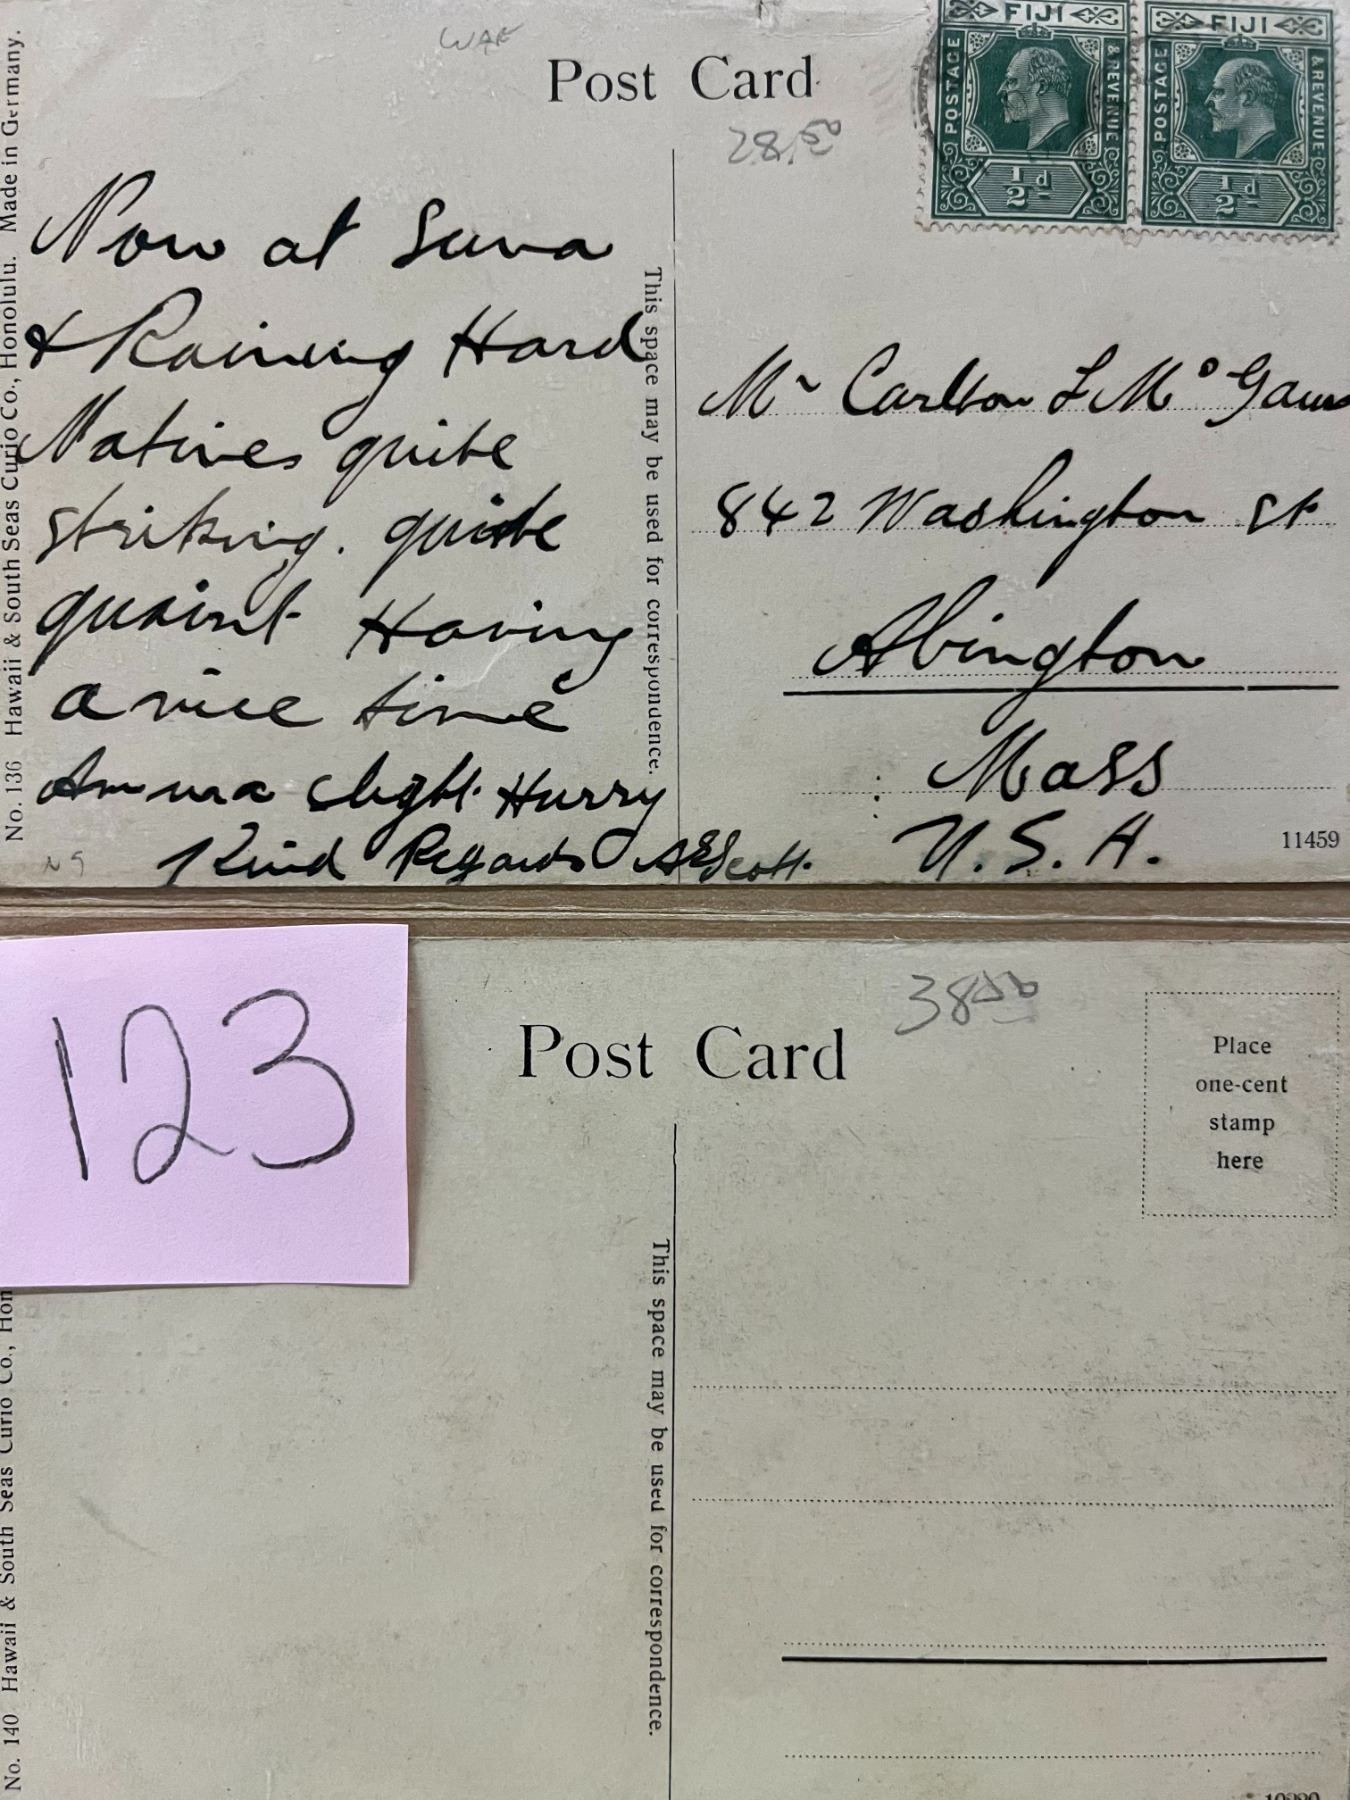 WAF
Post Card
28.50
FIJI
POSTAGE
& REVENUE
½ d
FIJI
POSTAGE
& REVENUE
½ d
No. 136 Hawaii & South Seas Curio Co., Honolulu. Made in Germany.
Now at Suva
& Raining Hard
Natives quite
striking. quite
quaint Having
a nice time
Am in a slight Hurry
Kind Regards AEScott.
This space may be used for correspondence.
Mr Carlton L Mc
842 Washington St
Abington
Mass
U. S. A.
11459
N9
123
Post Card
3800
Place
one-cent
stamp
here
This space may be used for correspondence.
No. 140 Hawaii & South Seas Curio Co., Hon